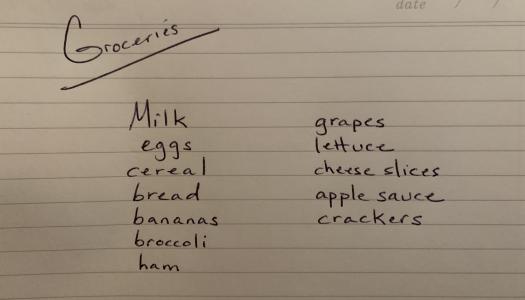 date / /
Groceries
Milk
eggs
cereal
bread
bananas
broccoli
ham
grapes
lettuce
cheese slices
apple sauce
crackers